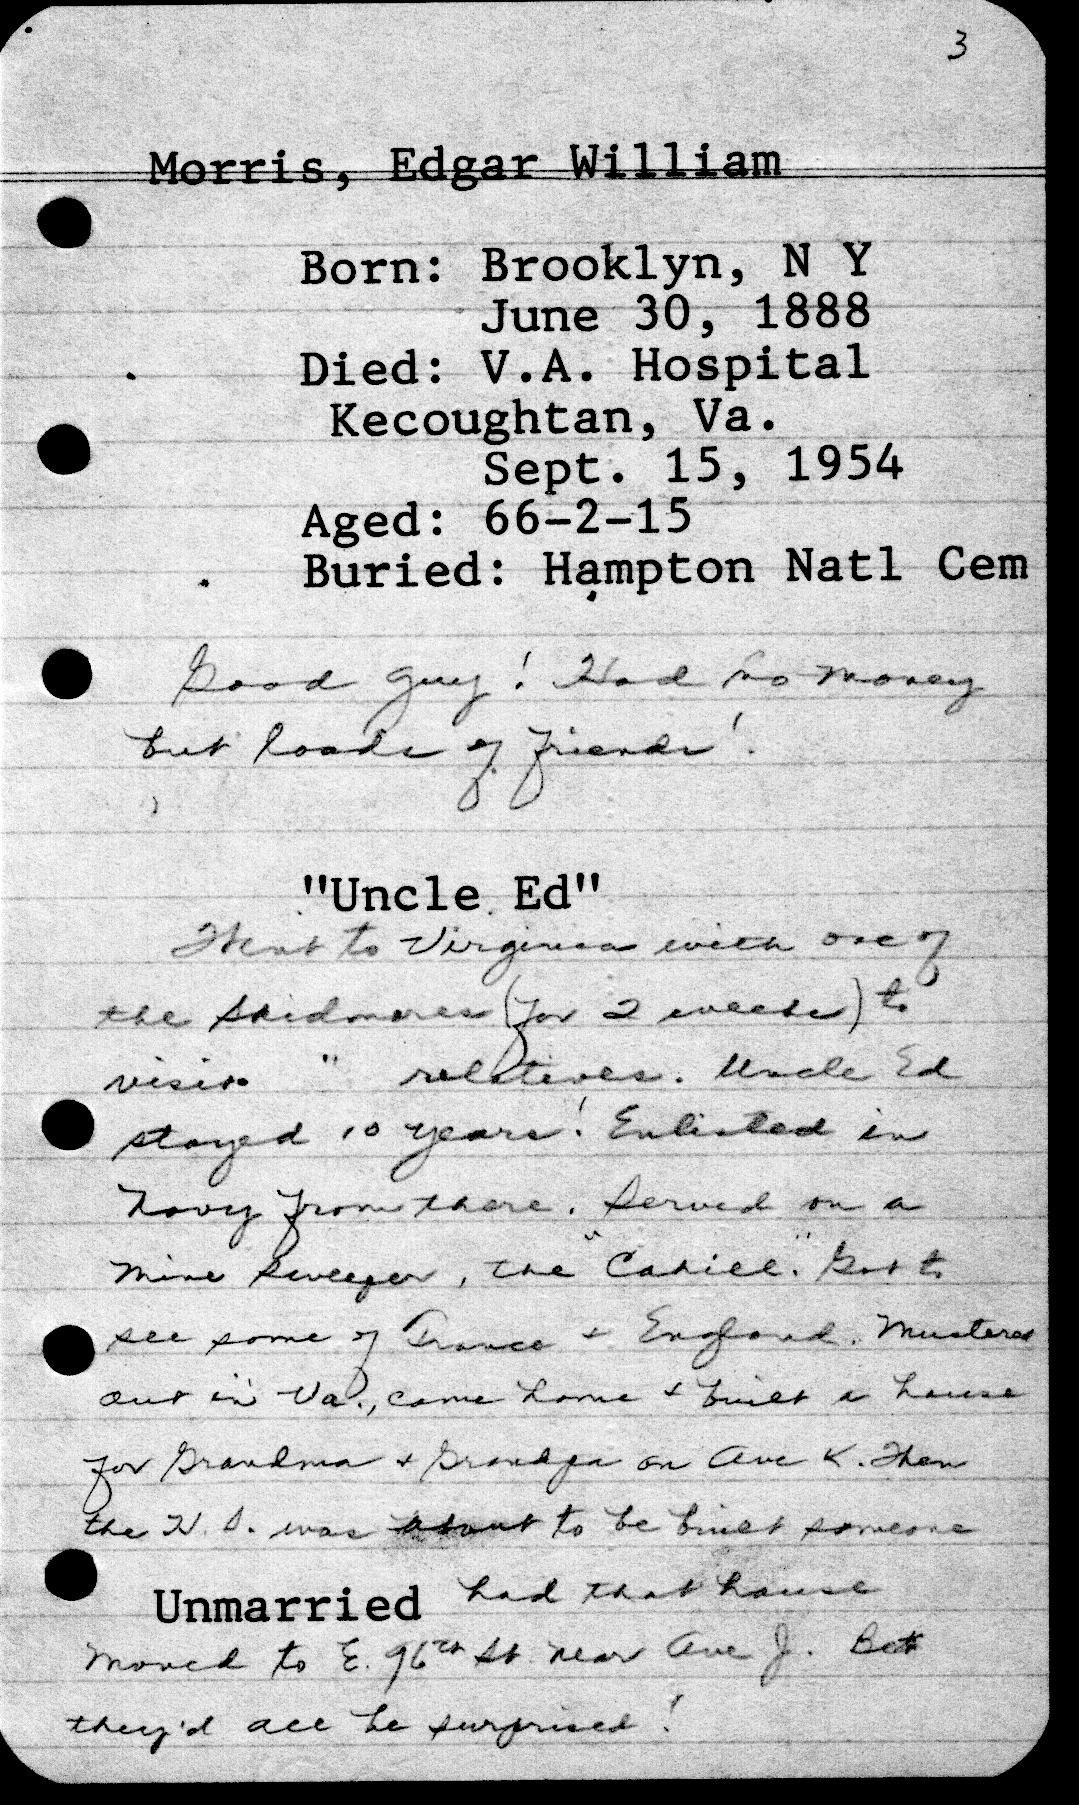 3
Morris, Edgar William
Born: Brooklyn, N Y
June 30, 1888
Died: V.A. Hospital
Kecoughtan, Va.
Sept. 15, 1954
Aged: 66-2-15
Buried: Hampton Natl Cem
Good guy! Had no money
but loads of friends!
"Uncle Ed"
Went to Virginia with one of
the Skidmores (for 2 weeks) to
visit " relatives. Uncle Ed
stayed 10 years! Enlisted in
Navy from there. Served on a
mine sweeper, the "Cahill". Got to
see some of France + England. Mustered
out in Va., came home + built a house
for Grandma + Grandpa on Ave K. Then
the H. S. was about to be built someone
Unmarried had that house
moved to E. 96th St. near Ave J. Bet
they'd all be surprised!